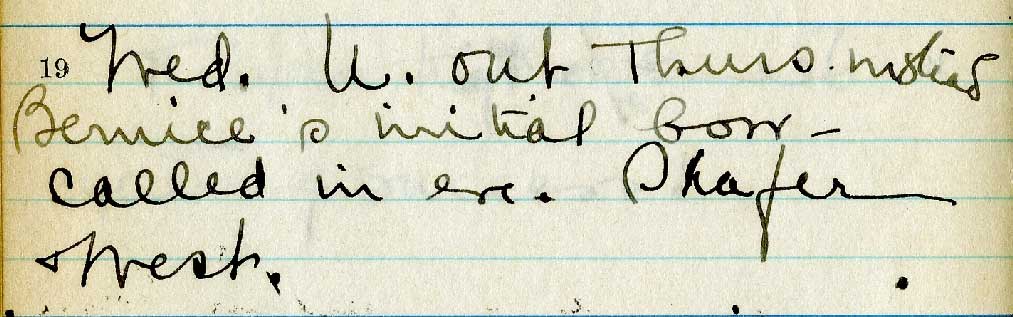 19 Wed. U. out Thurs.
Bernice's initial bow –
called in eve. Shafer
West.